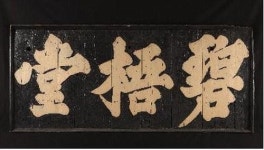 碧梧堂